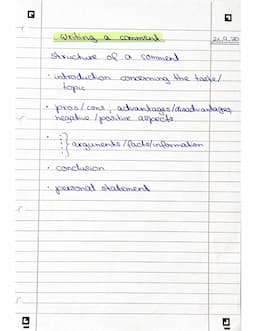 writing a comment
21.9.20
structure of a comment
· introduction concerning the taste/
topic
· pros/cons, advantages/disadvantages,
negative/positive aspects
· arguments/facts/information
· conclusion
· personal statement